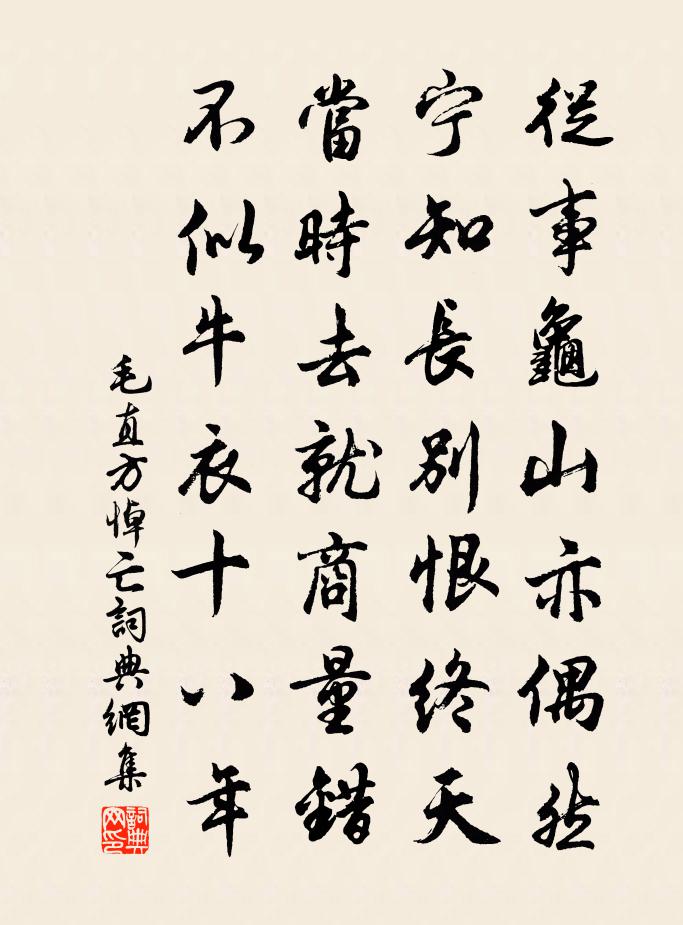 從事龜山亦偶然
宁知長別恨終天
當時去就商量錯
不似牛衣十八年
毛直方悼亡詞典網集
詞典网印